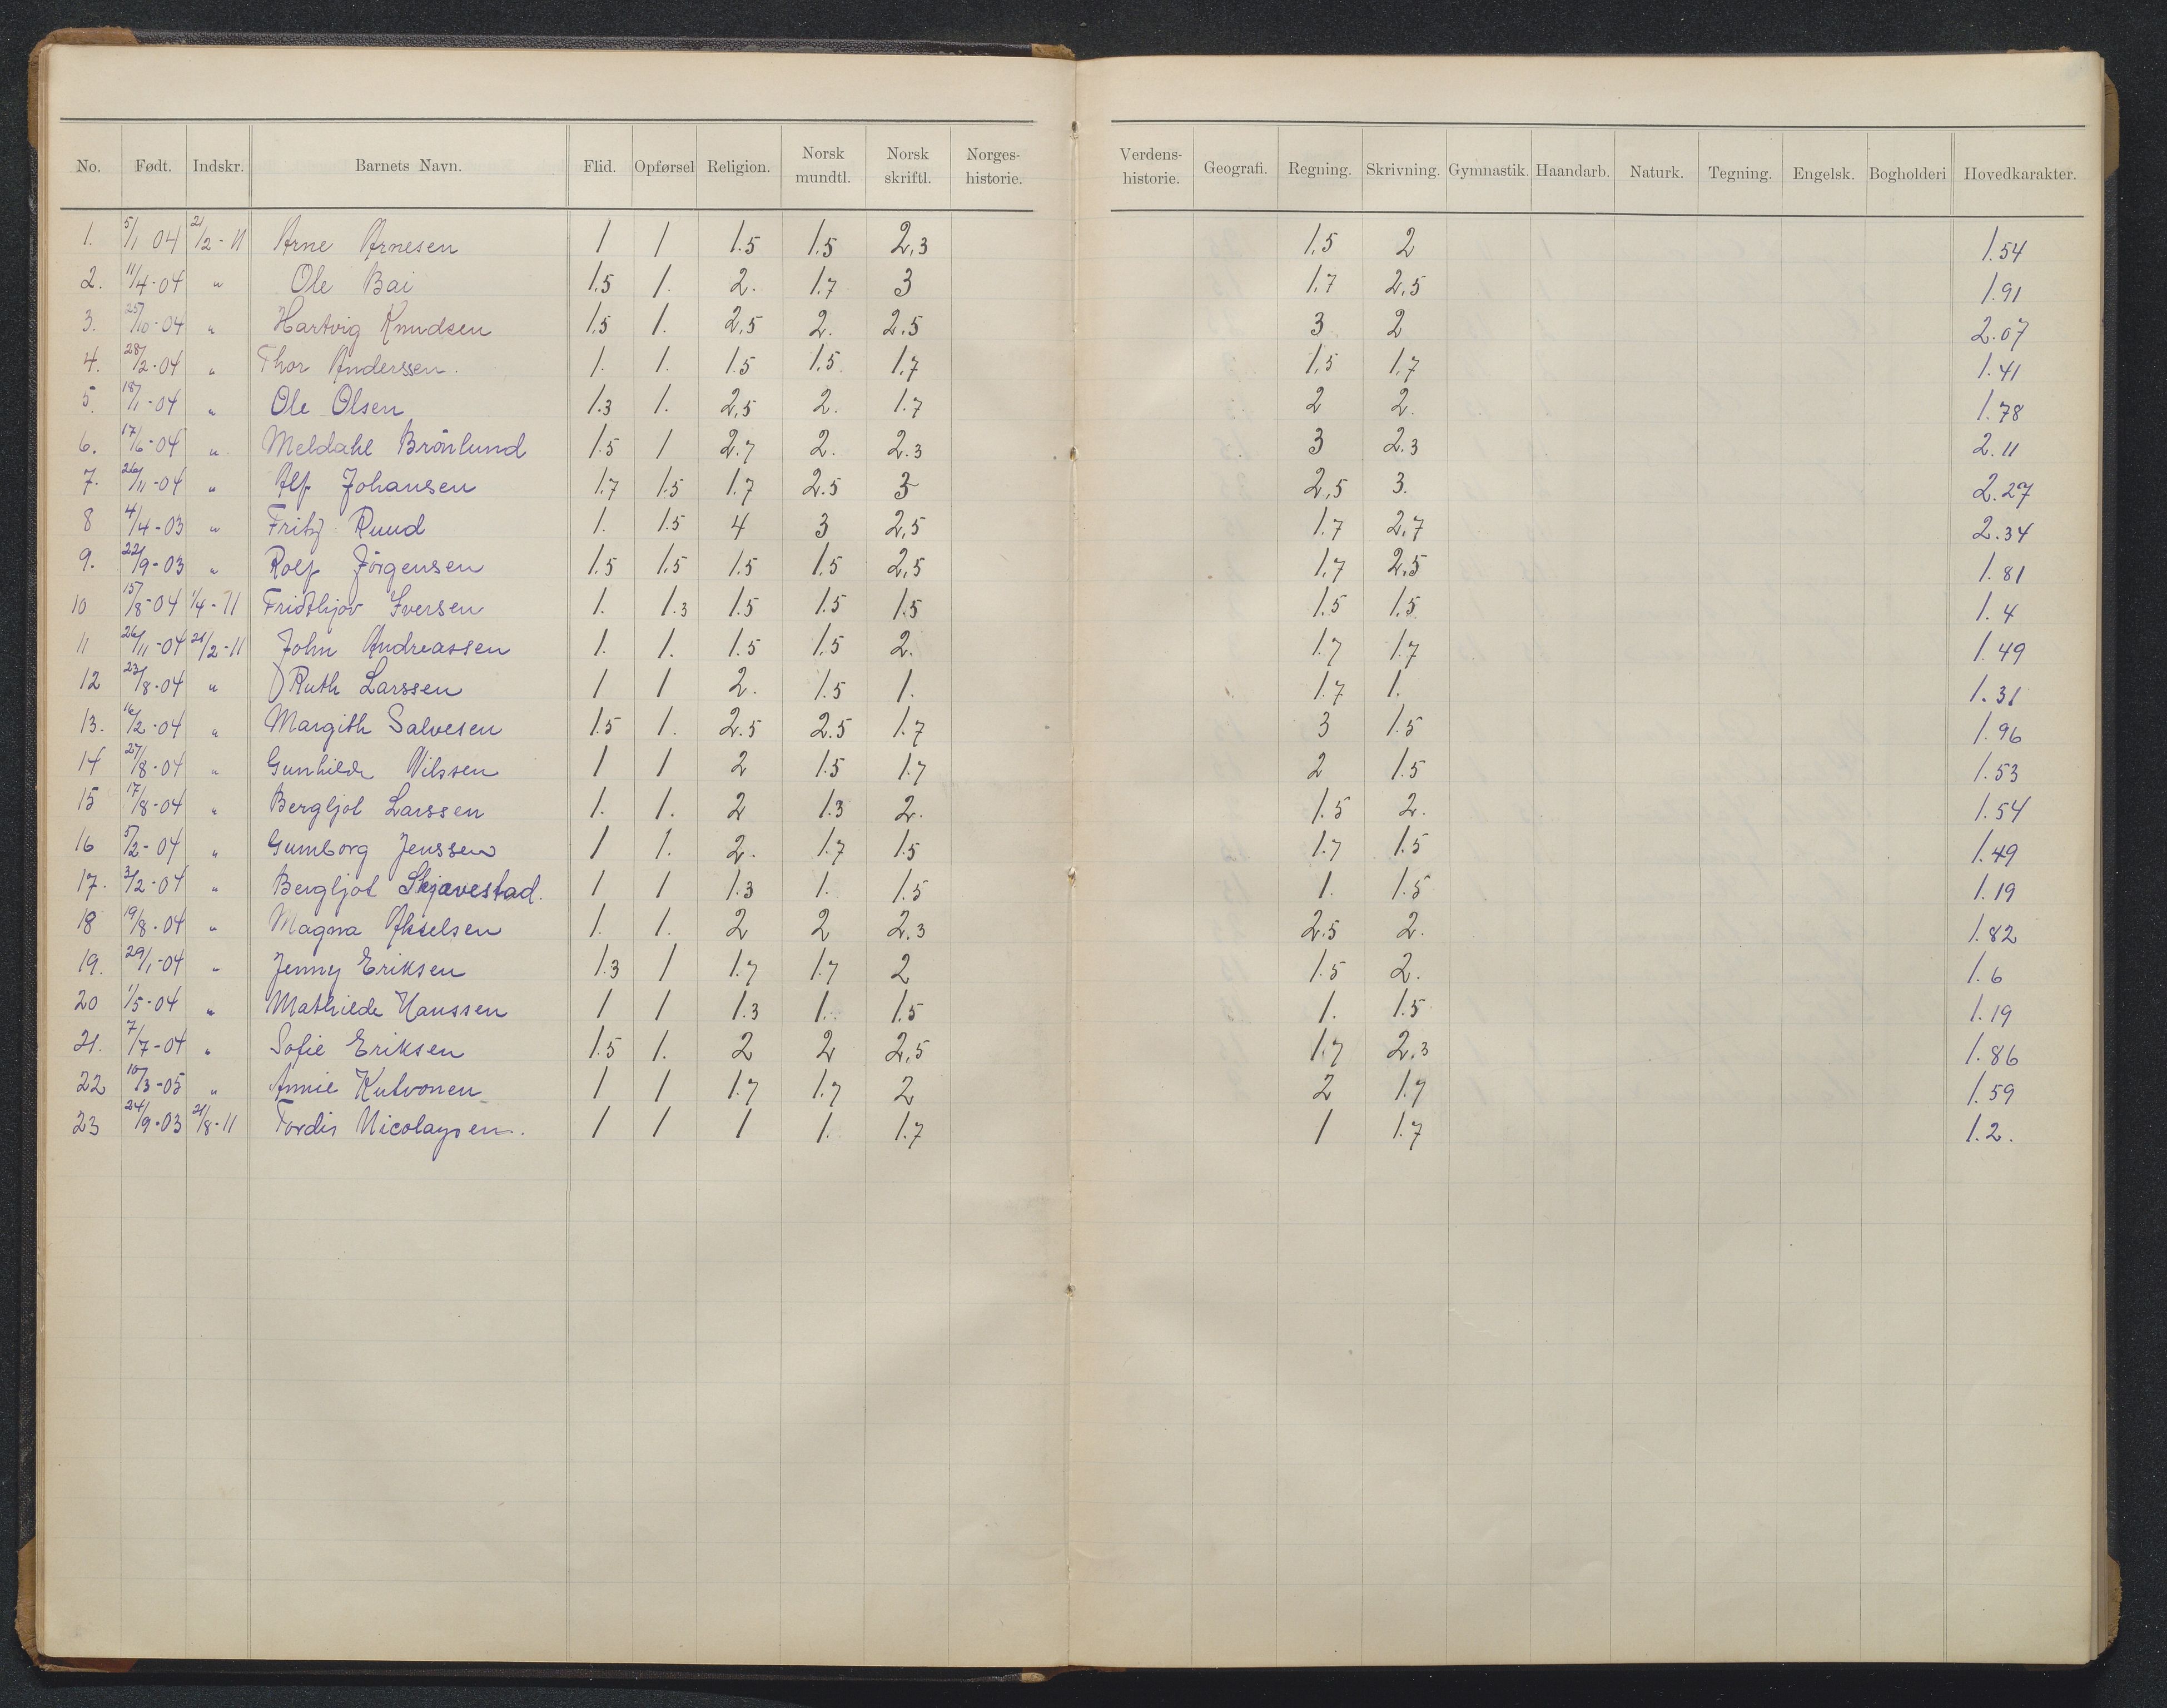 No. Født. Indskr. Barnets Navn. Flid. Opførsel Religion. Norsk mundtl. Norsk skriftl. Norges-historie. Verdens-historie. Geografi. Regning. Skrivning. Gymnastik. Haandarb. Naturk. Tegning. Engelsk. Bogholderi Hovedkarakter.
1. 5/1 04 21/2-11 Arne Arnesen 1 1 1.5 1.5 2,3 1,5 2 1.54
2. 11/4-04 " Ole Bai 1.5 1. 2. 1.7 3 1.7 2,5 1.91
3. 25/10-04 " Hartvig Knudsen 1.5 1. 2,5 2. 2.5 3 2 2.07
4. 28/2-04 " Thor Anderssen. 1. 1. 1.5 1.5 1.7 1,5 1,7 1.41
5. 18/1-04 " Ole Olsen 1.3 1. 2,5 2. 1.7 2 2. 1.78
6. 17/6-04 " Meldahl Brönlund 1.5 1 2.7 2. 2.3 3 2.3 2.11
7. 26/11-04 " Alf Johansen 1.7 1.5 1.7 2.5 3 2,5 3. 2.27
8 4/4-03 " Fritz Ruud 1. 1.5 4 3 2,5 1.7 2,7 2.34
9. 22/9-03 " Rolf Jörgensen 1.5 1.5 1.5 1.5 2,5 1.7 2.5 1.81
10 15/8-04 1/4-11 Fridthjov Iversen 1. 1.3 1.5 1.5 1.5 1.5 1.5 1.4
11 26/11-04 21/2-11 John Andreassen 1. 1. 1.5 1.5 2. 1.7 1.7 1.49
12 23/8-04 " ) Ruth Larssen 1 1 2. 1.5 1. 1.7 1. 1.31
13. 16/2-04 " Margith Salvesen 1.5 1. 2.5 2.5 1.7 3 1.5 1.96
14 27/8-04 " Gunhilde Nilssen 1 1 2 1.5 1.7 2 1.5 1.53
15 17/8-04 " Bergljot Larssen 1. 1. 2 1.3 2. 1.5 2. 1.54
16 5/2-04 " Gumborg Jenssen 1 1. 2. 1.7 1.5 1.7 1.5 1.49
17. 3/2-04 " Bergljot Skjævestad. 1 1 1.3 1. 1.5 1. 1.5 1.19
18 19/8-04 " Magna Akselsen 1. 1. 2 2 2.3 2.5 2. 1.82
19. 29/1-04 " Jenny Eriksen 1.3 1 1.7 1.7 2 1.5 2. 1.6
20 1/5-04 " Mathilde Hanssen 1 1 1.3 1. 1.5 1. 1.5 1.19
21. 7/7-04 " Sofie Eriksen 1.5 1. 2 2 2,5 1.7 2.3 1.86
22 10/3-05 " Annie Kutvonen 1 1 1.7 1.7 2 2 1.7 1.59
23 24/9-03 21/8-11 Tordis Nicolaysen. 1 1 1 1. 1.7 1 1.7 1.2.